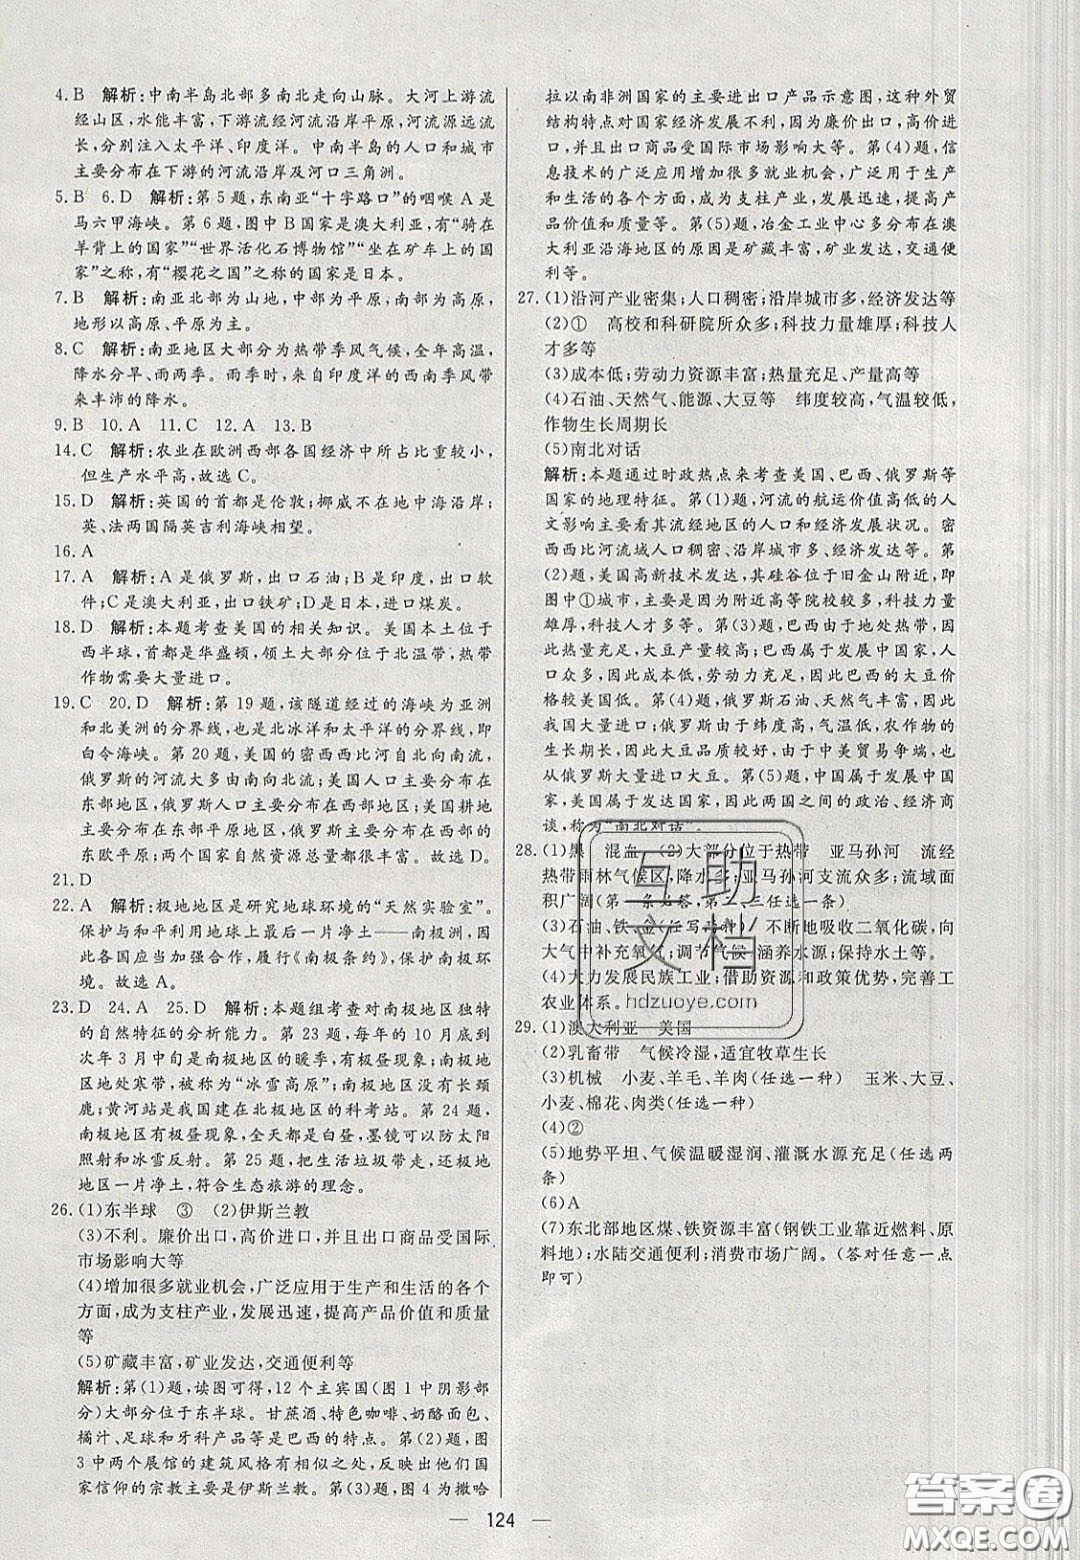 4. B　解析:中南半岛北部多南北走向山脉。大河上游流
经山区,水能丰富,下游流经河流沿岸平原,河流源远流
长,分别注入太平洋、印度洋。中南半岛的人口和城市
主要分布在下游的河流沿岸及河口三角洲。
5. B　6. D　解析:第5题,东南亚“十字路口”的咽喉A是
马六甲海峡。第6题,图中B国家是澳大利亚,有“骑在
羊背上的国家”“世界活化石博物馆”“坐在矿车上的国
家”之称,有“樱花之国”之称的国家是日本。
7. B　解析:南亚北部为山地,中部为平原,南部为高原,
地形以高原、平原为主。
8. C　解析:南亚地区大部分为热带季风气候,全年高温,
降水分旱、雨两季。雨季时,来自印度洋的西南季风带
来丰沛的降水。
9. B　10. A　11. C　12. A　13. B
14. C　解析:农业在欧洲西部各国经济中所占比重较小,
但生产水平高,故选C。
15. D　解析:英国的首都是伦敦;挪威不在地中海沿岸;
英、法两国隔英吉利海峡相望。
16. A
17. A　解析:A是俄罗斯,出口石油;B是印度,出口软
件;C是澳大利亚,出口铁矿;D是日本,进口煤炭。
18. D　解析:本题考查美国的相关知识。美国本土位于
西半球,首都是华盛顿,领土大部分位于北温带,热带
作物需要大量进口。
19. C　20. D　解析:第19题,该隧道经过的海峡为亚洲
和北美洲的分界线,也是北冰洋和太平洋的分界线,即
白令海峡。第20题,美国的密西西比河自北向南流,
俄罗斯的河流大多由南向北流;美国人口主要分布在
东部地区,俄罗斯人口主要分布在西部地区;美国耕地
主要分布在东部平原地区,俄罗斯主要分布在西部的
东欧平原;两个国家自然资源总量都很丰富。故选D。
21. D
22. A　解析:极地地区是研究地球环境的“天然实验室”。
保护与和平利用地球上最后一片净土——南极洲,因
此各国应当加强合作,履行《南极条约》,保护南极环
境。故选A。
23. D　24. A　25. D　解析:本题组考查对南极地区独特
的自然特征的分析能力。第23题,每年的10月底到
次年3月中旬是南极地区的暖季,有极昼现象;南极
地区地处寒带,被称为“冰雪高原”;南极地区没有长颈
鹿;黄河站是我国建在北极地区的科考站。第24题,
南极地区有极昼现象,全天都是白昼,墨镜可以防太阳
照射和冰雪反射。第25题,把生活垃圾带走,还南极
地区一片净土,符合生态旅游的理念。
26. (1)东半球　③　(2)伊斯兰教
(3)不利。廉价出口,高价进口,并且出口商品受国际
市场影响大等
(4)增加很多就业机会,广泛应用于生产和生活的各个
方面,成为支柱产业,发展迅速,提高产品价值和质量
等
(5)矿藏丰富,矿业发达,交通便利等
解析:第(1)题,读图可得,12个主宾国(图1中阴影部
分)大部分位于东半球。甘蔗酒、特色咖啡、奶酪面包、
橘汁、足球和牙科产品等是巴西的特点。第(2)题,图
3中两个展馆的建筑风格有相似之处,反映出它们国
家信仰的宗教主要是伊斯兰教。第(3)题,图4为撒哈
拉以南非洲国家的主要进出口产品示意图,这种外贸
结构特点对国家经济发展不利,因为廉价出口,高价进
口,并且出口商品受国际市场影响大等。第(4)题,信
息技术的广泛应用增加了很多就业机会,广泛应用于生
产和生活的各个方面,成为支柱产业,发展迅速,提高产
品价值和质量等。第(5)题,冶金工业中心多分布在澳
大利亚沿海地区的原因是矿藏丰富,矿业发达,交通便
利等。
27. (1)沿河产业密集;人口稠密;沿岸城市多,经济发达等
(2)①　高校和科研院所众多;科技力量雄厚;科技人
才多等
(3)成本低;劳动力资源丰富;热量充足、产量高等
(4)石油、天然气、能源、大豆等　纬度较高,气温较低,
作物生长周期长
(5)南北对话
解析:本题通过时政热点来考查美国、巴西、俄罗斯等
国家的地理特征。第(1)题,河流的航运价值高低的人
文影响主要看其流经地区的人口和经济发展状况。密
西西比河流域人口稠密、沿岸城市多、经济发达等。第
(2)题,美国高新技术发达,其硅谷位于旧金山附近,即
图中①城市,主要是因为附近高等院校较多,科技力量
雄厚,科技人才多等。第(3)题,巴西位于热带,因
此热量充足,大豆产量较高;巴西属于发展中国家,人
口众多,因此成本较低;劳动力充足,因此大豆的价
格较美国低。第(4)题,俄罗斯石油、天然气丰富,因此
我国大量进口;俄罗斯由于纬度高,气温低,农作物的
生长期长,因此大豆品质较好,由于中美贸易争端,也
从俄罗斯大量进口大豆。第(5)题,中国属于发展中国
家,美国属于发达国家,因此两国之间的政治、经济的
商谈,称为“南北对话”。
28. (1)黑　混血　(2)大部分位于热带　亚马孙河　流经
热带雨林气候区,降水多;亚马孙河支流众多;流域面
积广阔(第一条必答,第二、三任选一条)
(3)石油、铁、金(任写两种)　不断地吸收二氧化碳,向
大气中补充氧气;调节气候;涵养水源;保持水土等。
(4)大力发展民族工业;借助资源和政策优势,完善工
农业体系。
29. (1)澳大利亚　美国
(2)乳畜带　气候冷湿,适宜牧草生长
(3)机械　小麦、羊毛、羊肉(任选一种)　玉米、大豆、
小麦、棉花、肉类(任选一种)
(4)②
(5)地势平坦、气候温暖湿润、灌溉水源充足(任选两
条)
(6)A
(7)东北部地区煤、铁资源丰富(钢铁工业靠近燃料、原
料地);水陆交通便利;消费市场广阔。(答对任意一点
即可)
互助
文档
hdzuoye.com
124
答案圈
MXQE.COM